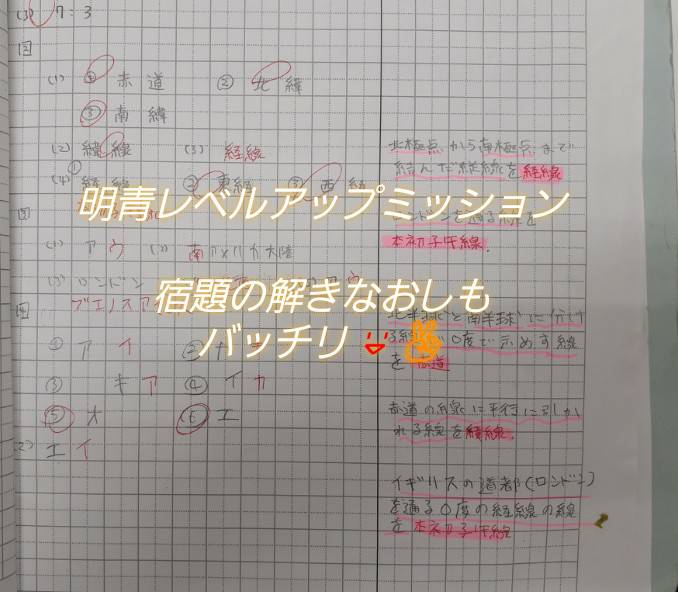 (3) 7:3
(1) ① 赤道 ② 北緯
③ 南緯
(2) 緯線 (3) 経線
(4) ① 経線 ② 東経 ③ 西経
(1) ア ウ (2) 南アメリカ大陸
(3) ロンドン
ブエノスア
① ア イ ②
③ キ ア ④ イ カ
⑤ オ ⑥ エ
(2) エ イ
北極点から南極点まで
結んだ縦線を経線
ロンドンを通る
本初子午線.
北半球と南半球に分け
る 0度で示めす線
を 赤道
赤道の線に平行に引か
れる線を緯線.
イギリスの道都(ロンドン)
を通る0度の経線の線
を本初子午線
明青レベルアップミッション
宿題の解きなおしも
バッチリ